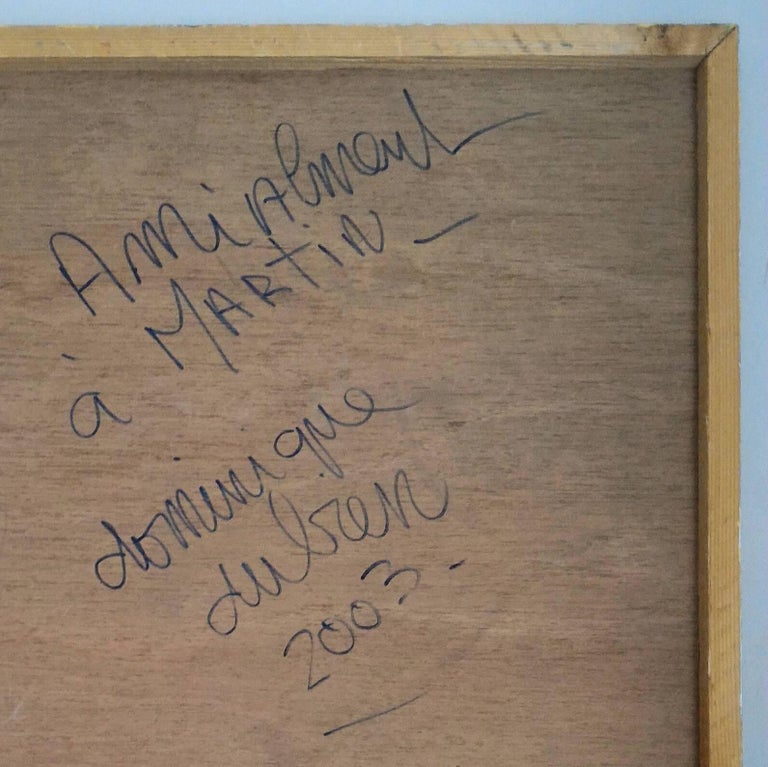 Amicalment
à MARTIN -
dominique
dubien
2003 -